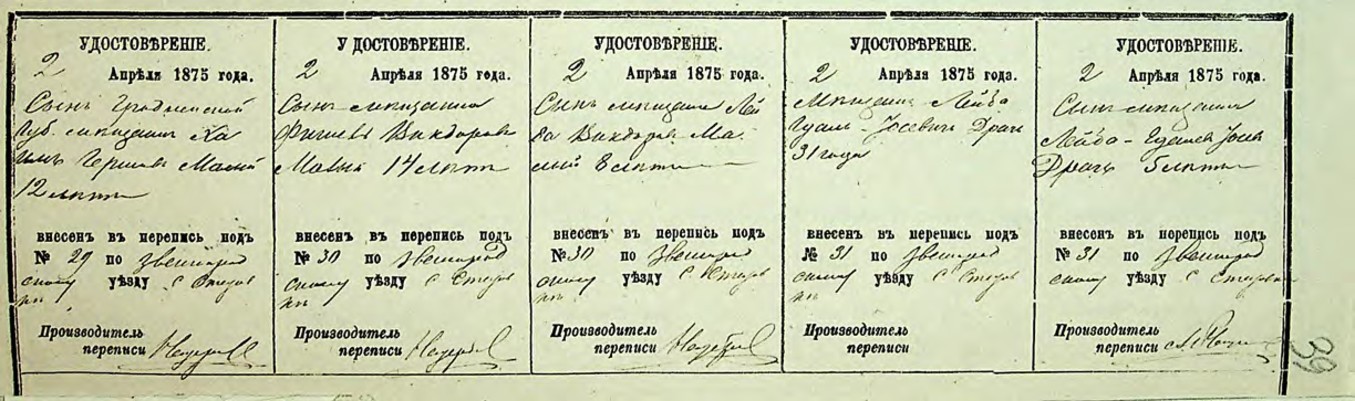 УДОСТОВѢРЕНІЕ.
2 Апрѣля 1875 года.
Сынъ Гродненской
Губ. мѣщанина Ха
Малый
12 лѣтъ
внесенъ въ перепись подъ
№ 29 по Звенигород
скому уѣзду с
Производитель
переписи
УДОСТОВѢРЕНІЕ.
2 Апрѣля 1875 года.
Сынъ мѣщанина
Викдоровъ
Малый 14 лѣтъ
внесенъ въ перепись подъ
№ 30 по Звенигород
скому уѣзду с
Производитель
переписи
УДОСТОВѢРЕНІЕ.
2 Апрѣля 1875 года.
Сынъ мѣщанина Лей
ба Викдоровъ Ма
лый 8 лѣтъ
внесенъ въ перепись подъ
№ 30 по Звенигород
скому уѣзду с
Производитель
переписи
УДОСТОВѢРЕНІЕ.
2 Апрѣля 1875 года.
Мѣщанинъ Лейба
Іосевичъ Драчъ
31 года
внесенъ въ перепись подъ
№ 31 по Звенигород
скому уѣзду с
Производитель
переписи
УДОСТОВѢРЕНІЕ.
2 Апрѣля 1875 года.
Сынъ мѣщанина
Лейба
Драчъ 5 лѣтъ
внесенъ въ перепись подъ
№ 31 по Звенигород
скому уѣзду с
Производитель
переписи
39